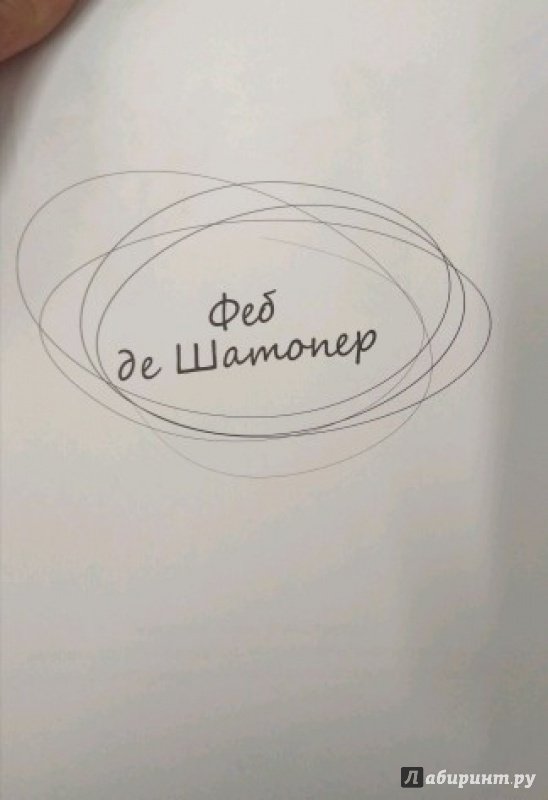 Феб
де Шатопер
Лабиринт.ру